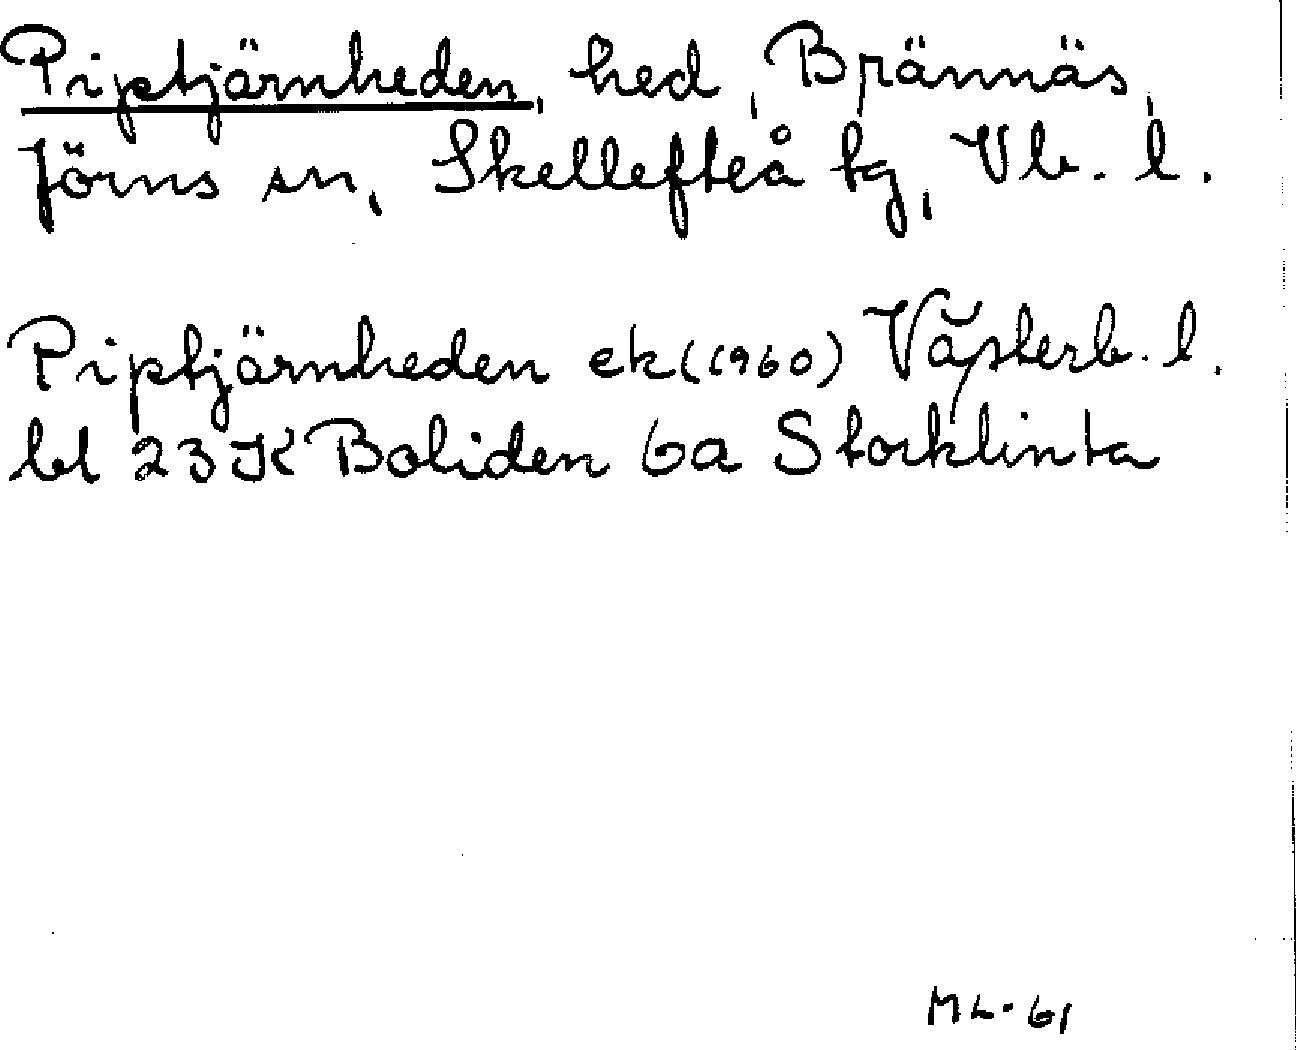 Piptjärnheden, hed, Brännäs,
Jörns sn, Skellefteå tg, Vb. l.
Piptjärnheden ek (1960) Västerb. l.
bl 23 K Boliden 6a Storklinta
ML-61